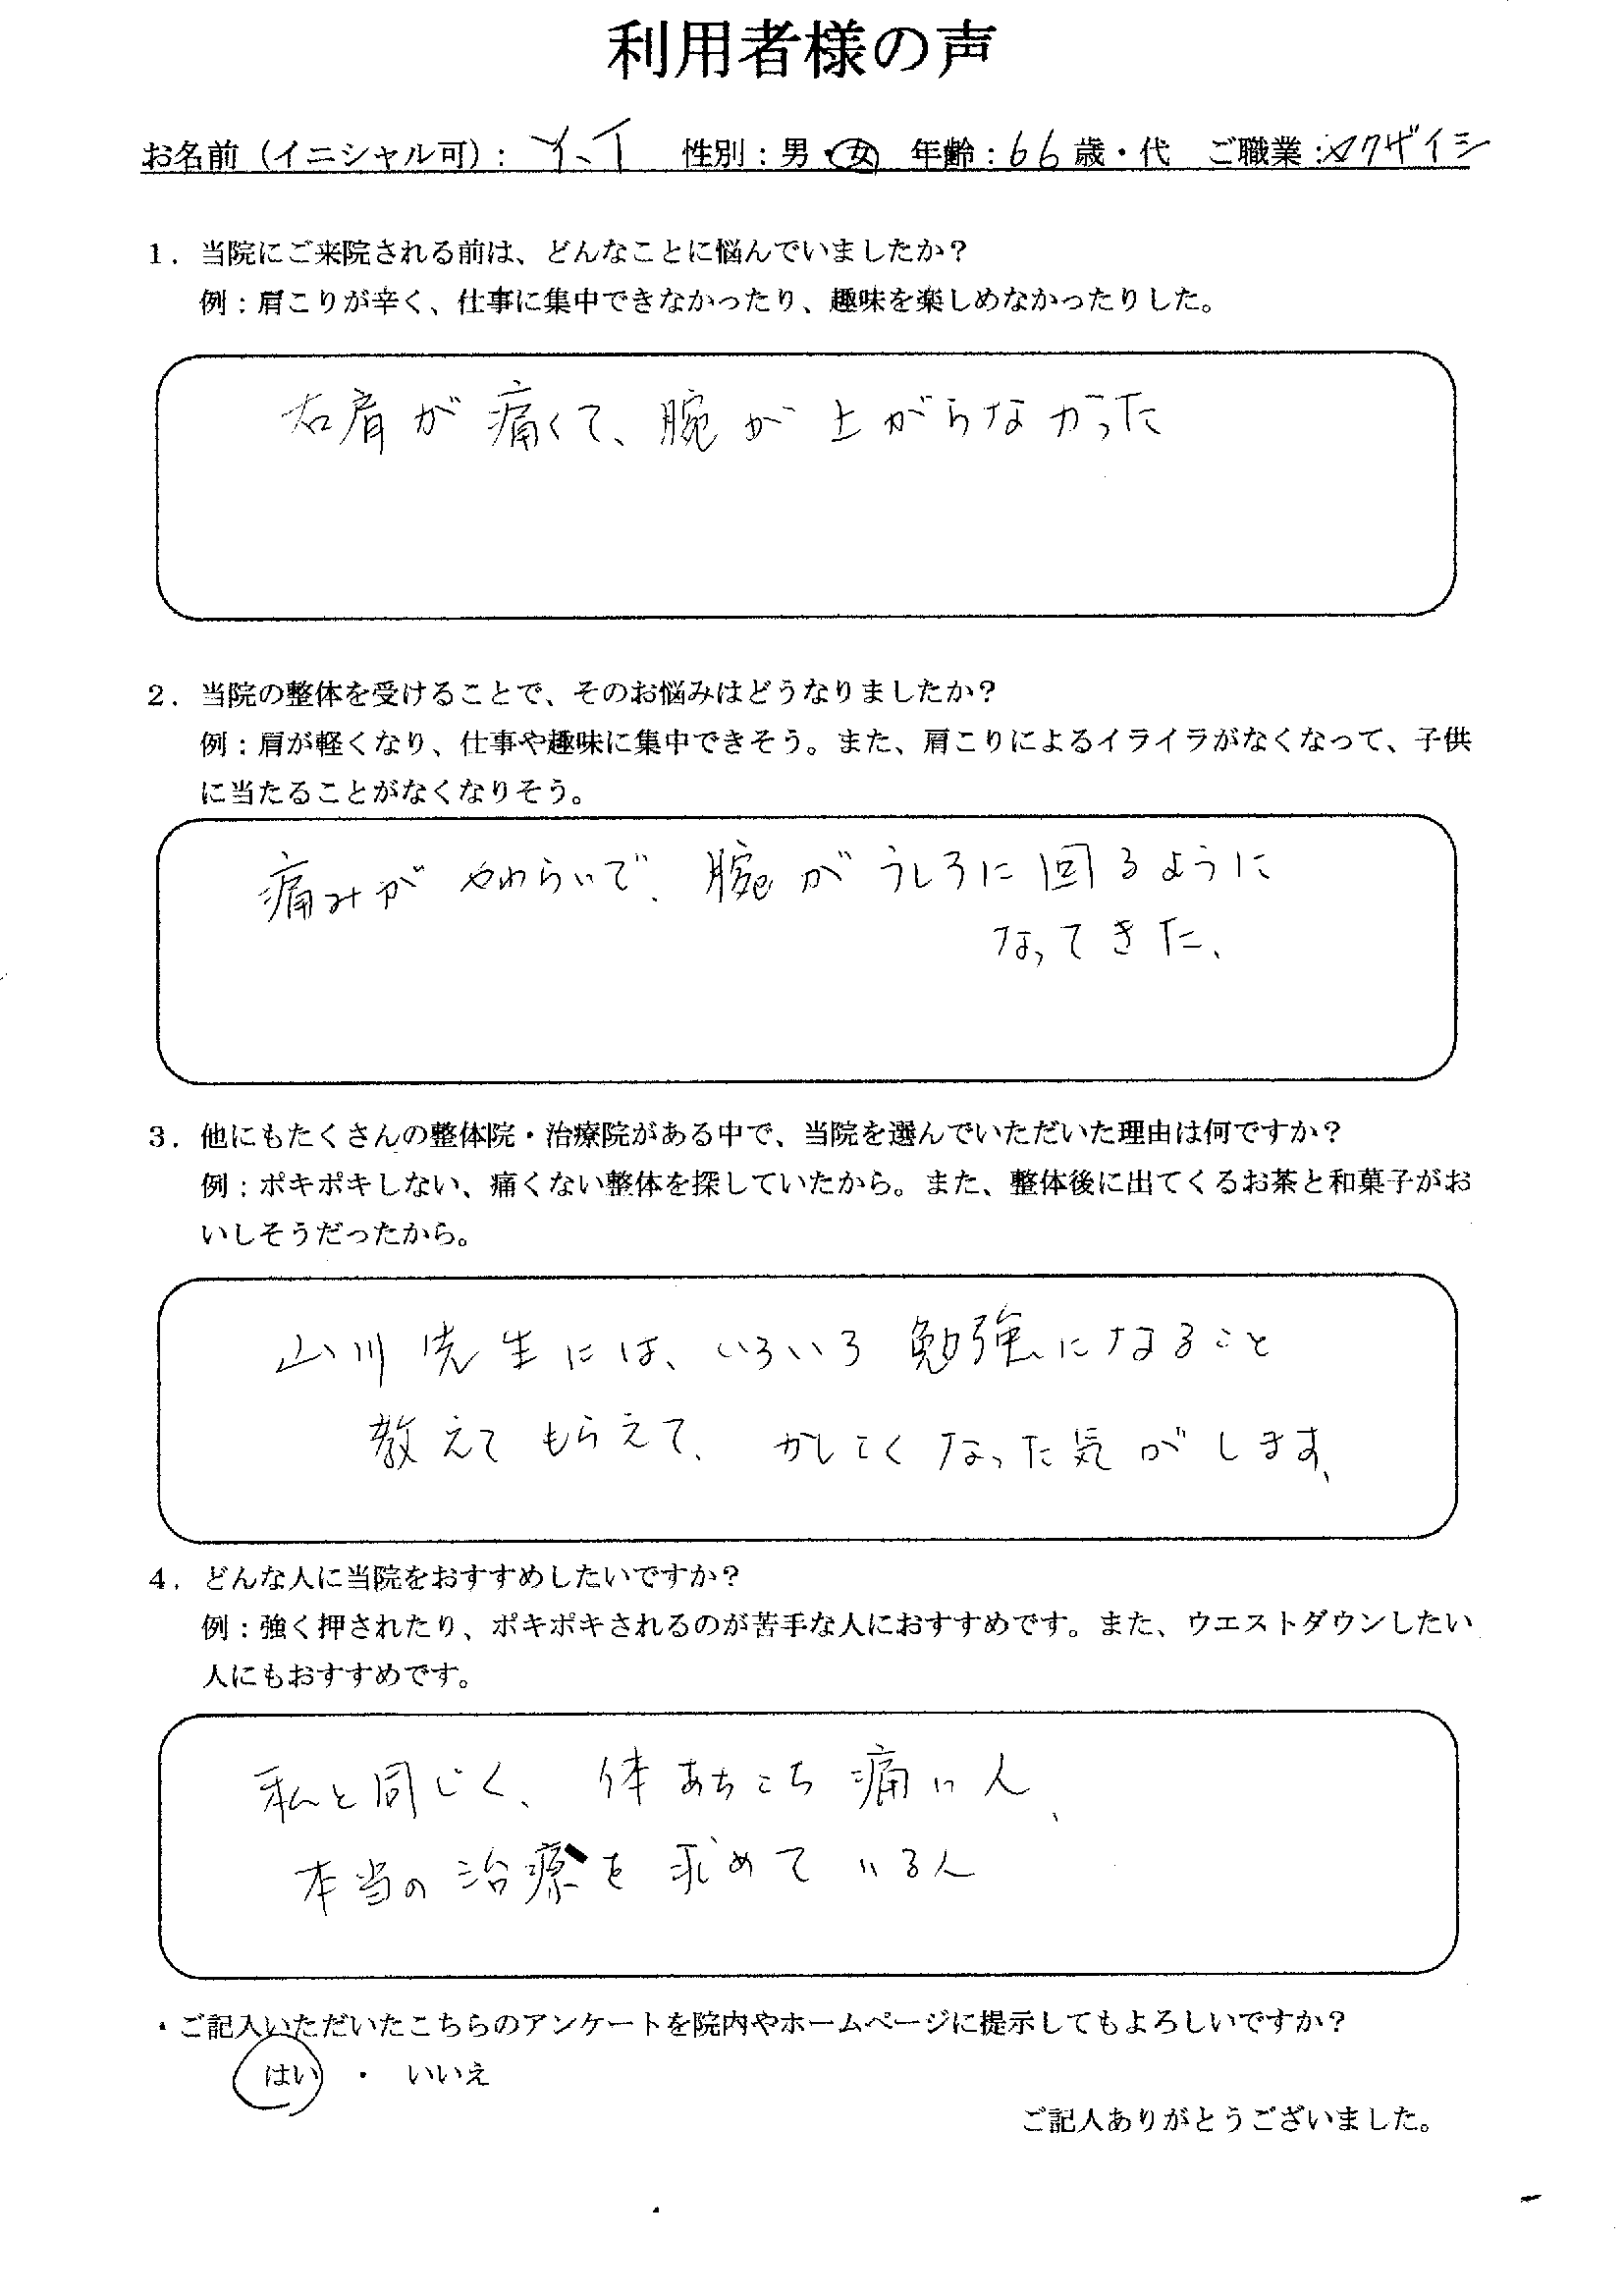 利用者様の声
お名前（イニシャル可）： Y.I 性別：男・女 年齢：66歳・代 ご職業：ヤクザイシ
１．当院にご来院される前は、どんなことに悩んでいましたか？
例：肩こりが辛く、仕事に集中できなかったり、趣味を楽しめなかったりした。
右肩が痛くて、腕が上がらなかった
２．当院の整体を受けることで、そのお悩みはどうなりましたか？
例：肩が軽くなり、仕事や趣味に集中できそう。また、肩こりによるイライラがなくなって、子供
に当たることがなくなりそう。
痛みがやわらいで、腕がうしろに回るように
なってきた、
３．他にもたくさんの整体院・治療院がある中で、当院を選んでいただいた理由は何ですか？
例：ポキポキしない、痛くない整体を探していたから。また、整体後に出てくるお茶と和菓子がお
いしそうだったから。
山川先生には、いろいろ勉強になること
教えてもらえて、かしこくなった気がします、
４．どんな人に当院をおすすめしたいですか？
例：強く押されたり、ポキポキされるのが苦手な人におすすめです。また、ウエストダウンしたい
人にもおすすめです。
私と同じく、体あちこち痛い人、
本当の治療を求めている人
・ご記入いただいたこちらのアンケートを院内やホームページに提示してもよろしいですか？
はい ・ いいえ
ご記入ありがとうございました。